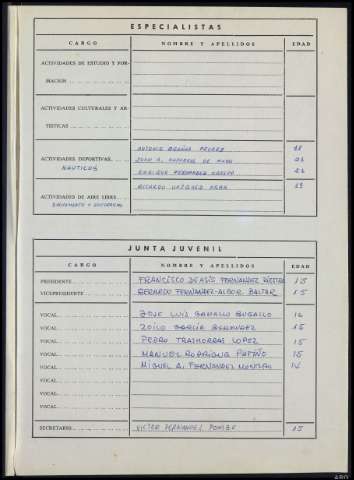 ESPECIALISTAS
CARGO NOMBRE Y APELLIDOS EDAD
ACTIVIDADES DE ESTUDIO Y FOR-
MACION
ACTIVIDADES CULTURALES Y AR-
TISTICAS
ACTIVIDADES DEPORTIVAS. ANTONIO
NAUTICOS ENRIQUE FERNANDEZ
ACTIVIDADES DE AIRE LIBRE RICARDO VAZQUEZ
JUNTA JUVENIL
CARGO NOMBRE Y APELLIDOS EDAD
PRESIDENTE FRANCISCO DE ASIS FERNANDEZ 15
VICEPRESIDENTE GERARDO FERNANDEZ-ALBOR BALTAR 15
VOCAL JOSE LUIS GAMALLO BUGALLO 14
VOCAL ZOILO GARCIA BERMUDEZ 15
VOCAL PEDRO TRASHORRAS LOPEZ 15
VOCAL MANUEL RODRIGUEZ PATIÑO 15
VOCAL MIGUEL A. FERNANDEZ
VOCAL
VOCAL
VOCAL
SECRETARIO VICTOR FERNANDEZ 15